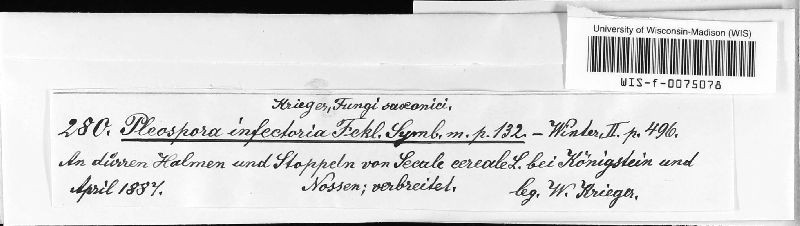 University of Wisconsin-Madison (WIS)
WIS-f-0075078
Krieger, Fungi saxonici.
280. Pleospora infectoria Fckl. Symb. m. p. 132. – Winter, II. p. 496.
An dürren Halmen und Stoppeln von Secale cereale L. bei Königstein und
Nossen; verbreitet.
April 1887. leg. W. Krieger.